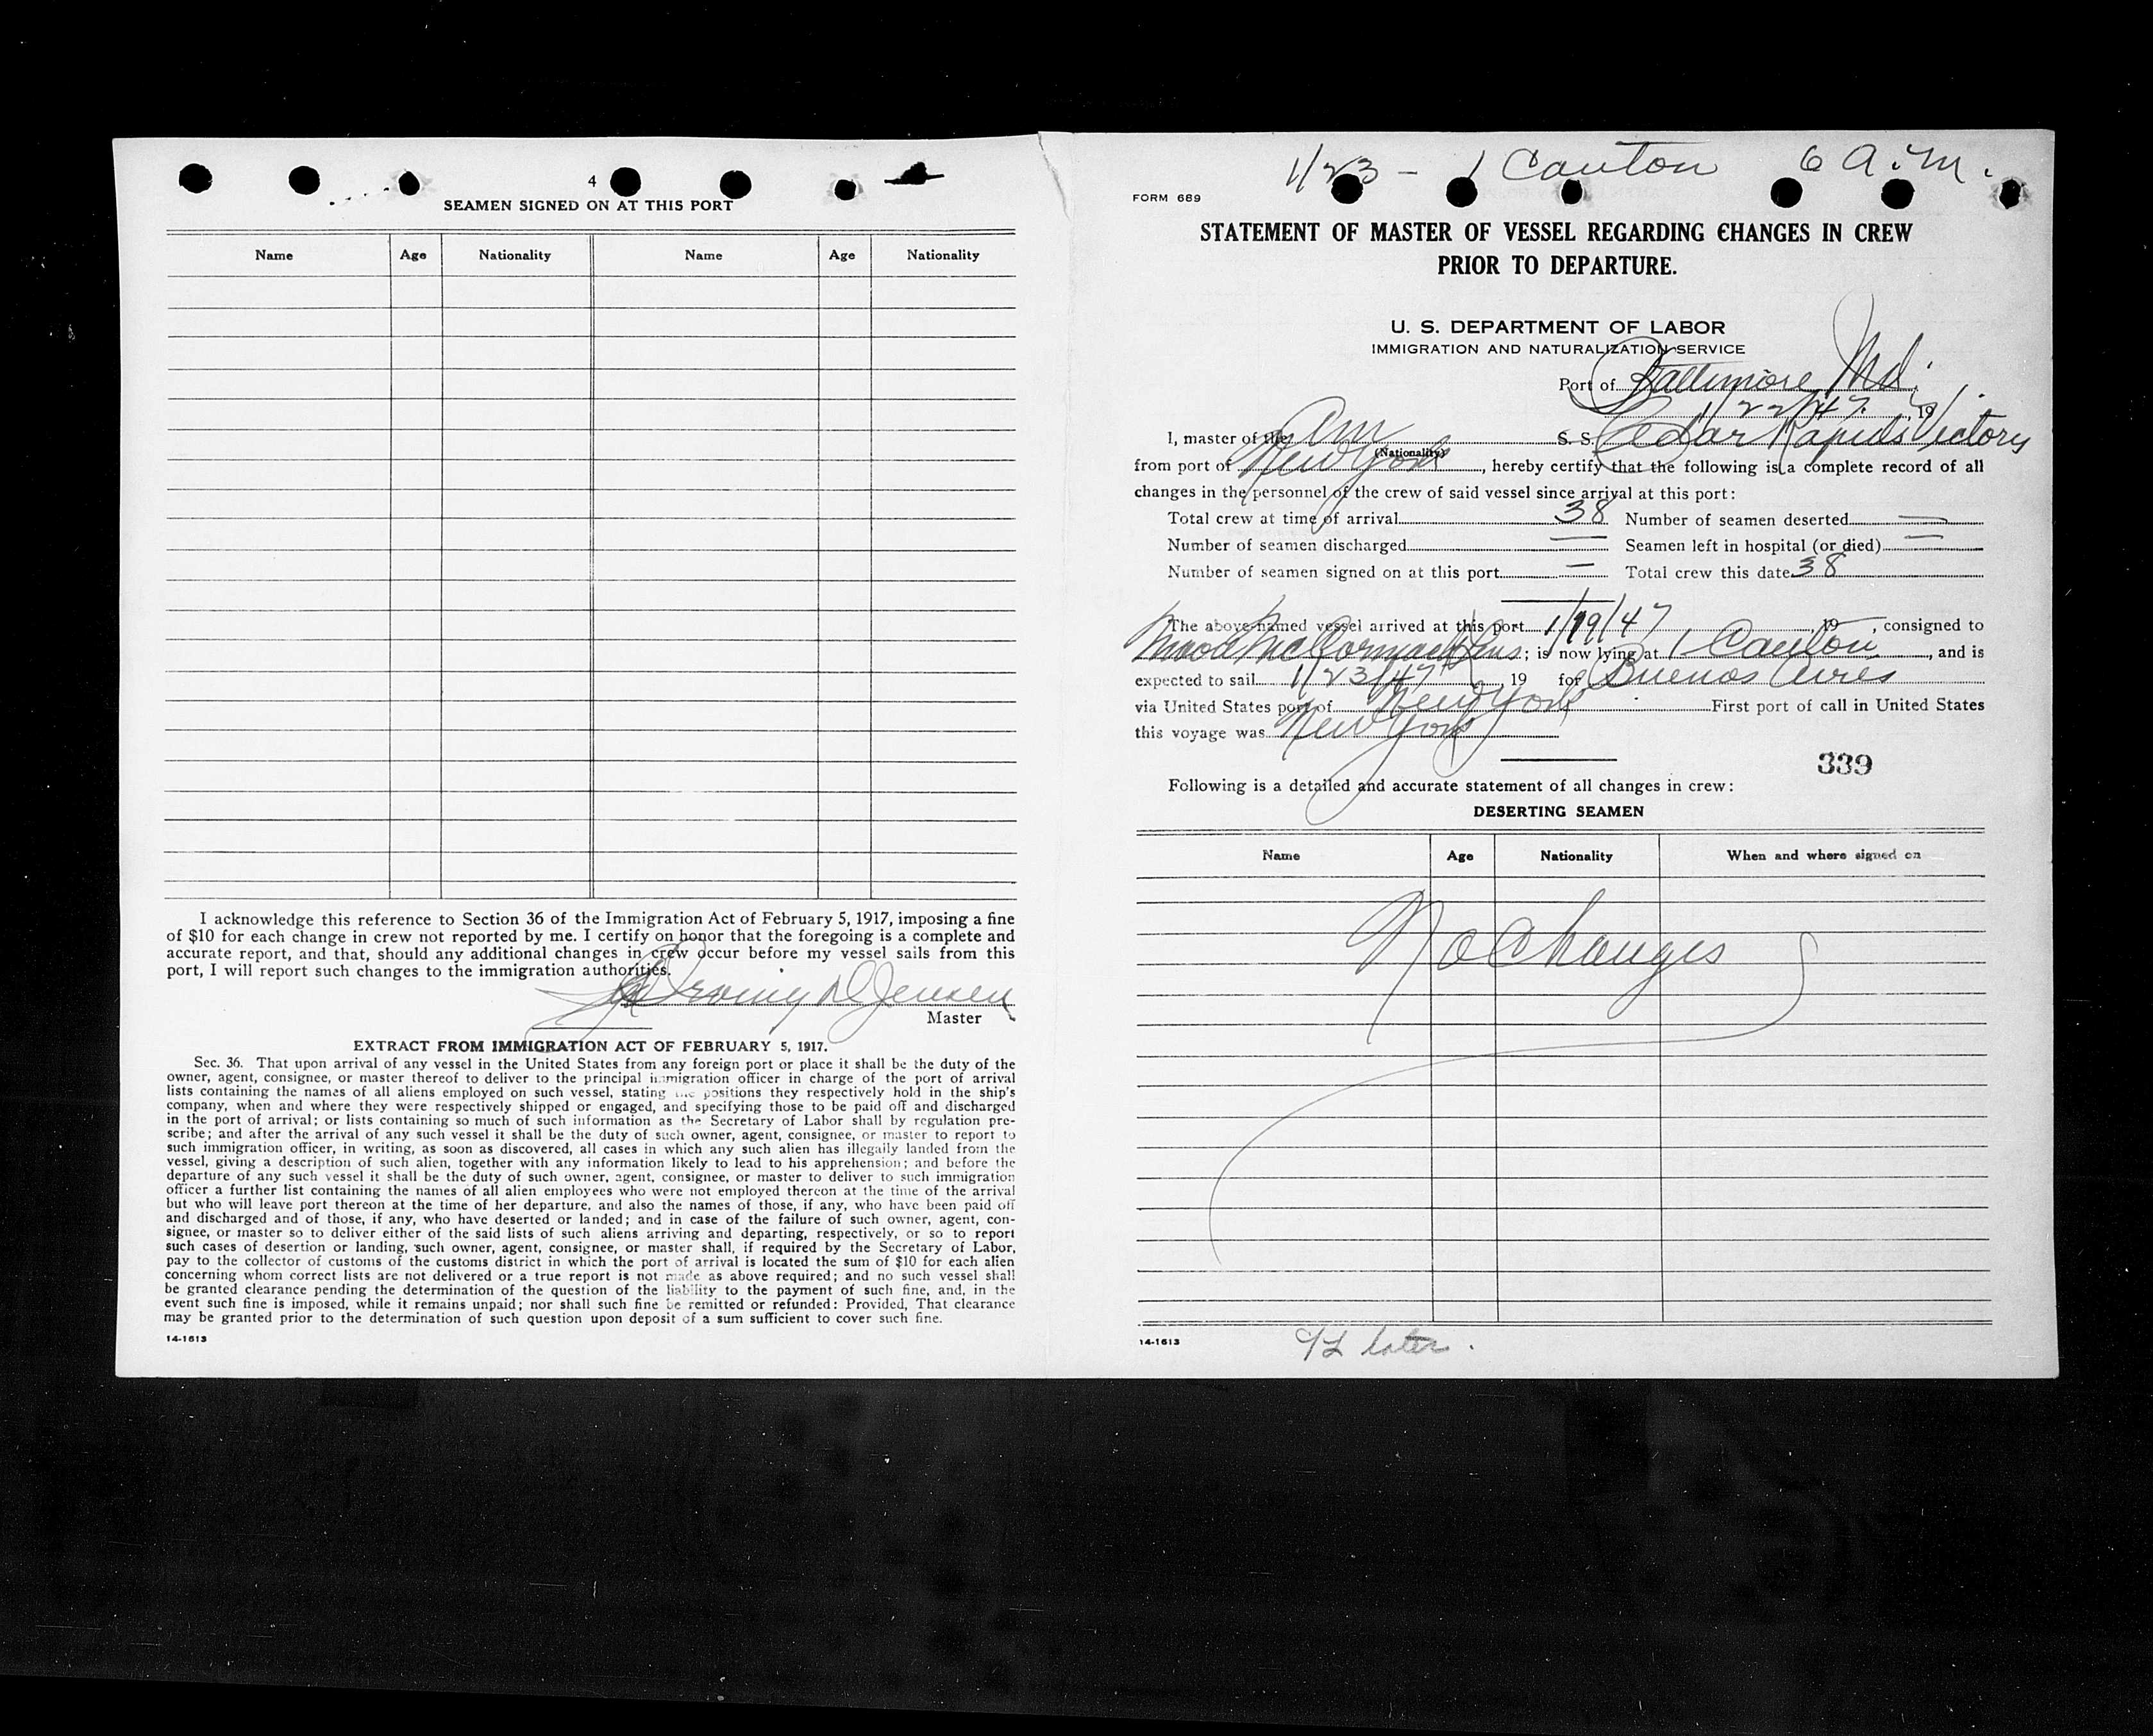 4
SEAMEN SIGNED ON AT THIS PORT
Name Age Nationality Name Age Nationality
I acknowledge this reference to Section 36 of the Immigration Act of February 5, 1917, imposing a fine
of $10 for each change in crew not reported by me. I certify on honor that the foregoing is a complete and
accurate report, and that, should any additional changes in crew occur before my vessel sails from this
port, I will report such changes to the immigration authorities.
Jensen
Master
EXTRACT FROM IMMIGRATION ACT OF FEBRUARY 5, 1917.
Sec. 36. That upon arrival of any vessel in the United States from any foreign port or place it shall be the duty of the
owner, agent, consignee, or master thereof to deliver to the principal immigration officer in charge of the port of arrival
lists containing the names of all aliens employed on such vessel, stating the positions they respectively hold in the ship's
company, when and where they were respectively shipped or engaged, and specifying those to be paid off and discharged
in the port of arrival; or lists containing so much of such information as the Secretary of Labor shall by regulation pre-
scribe; and after the arrival of any such vessel it shall be the duty of such owner, agent, consignee, or master to report to
such immigration officer, in writing, as soon as discovered, all cases in which any such alien has illegally landed from the
vessel, giving a description of such alien, together with any information likely to lead to his apprehension; and before the
departure of any such vessel it shall be the duty of such owner, agent, consignee, or master to deliver to such immigration
officer a further list containing the names of all alien employees who were not employed thereon at the time of the arrival
but who will leave port thereon at the time of her departure, and also the names of those, if any, who have been paid off
and discharged and of those, if any, who have deserted or landed; and in case of the failure of such owner, agent, con-
signee, or master so to deliver either of the said lists of such aliens arriving and departing, respectively, or so to report
such cases of desertion or landing, such owner, agent, consignee, or master shall, if required by the Secretary of Labor,
pay to the collector of customs of the customs district in which the port of arrival is located the sum of $10 for each alien
concerning whom correct lists are not delivered or a true report is not made as above required; and no such vessel shall
be granted clearance pending the determination of the question of the liability to the payment of such fine, and, in the
event such fine is imposed, while it remains unpaid; nor shall such fine be remitted or refunded: Provided, That clearance
may be granted prior to the determination of such question upon deposit of a sum sufficient to cover such fine.
14-1613
1/23 - 1 Canton 6 a.m.
FORM 689
STATEMENT OF MASTER OF VESSEL REGARDING CHANGES IN CREW
PRIOR TO DEPARTURE.
U. S. DEPARTMENT OF LABOR
IMMIGRATION AND NATURALIZATION SERVICE
Port of Baltimore Md.
1/22/47, 19
I, master of the Am S. S. Cedar Rapids Victory
(Nationality)
from port of New York, hereby certify that the following is a complete record of all
changes in the personnel of the crew of said vessel since arrival at this port:
Total crew at time of arrival 38 Number of seamen deserted —
Number of seamen discharged — Seamen left in hospital (or died) —
Number of seamen signed on at this port — Total crew this date 38
The above-named vessel arrived at this port 1/19/47, 19 , consigned to
McCormack Lines; is now lying at 1 Canton, and is
expected to sail 1/23/47, 19 for Buenos Aires
via United States port of New York First port of call in United States
this voyage was New York
339
Following is a detailed and accurate statement of all changes in crew:
DESERTING SEAMEN
Name Age Nationality When and where signed on
No Changes
14-1613
later.